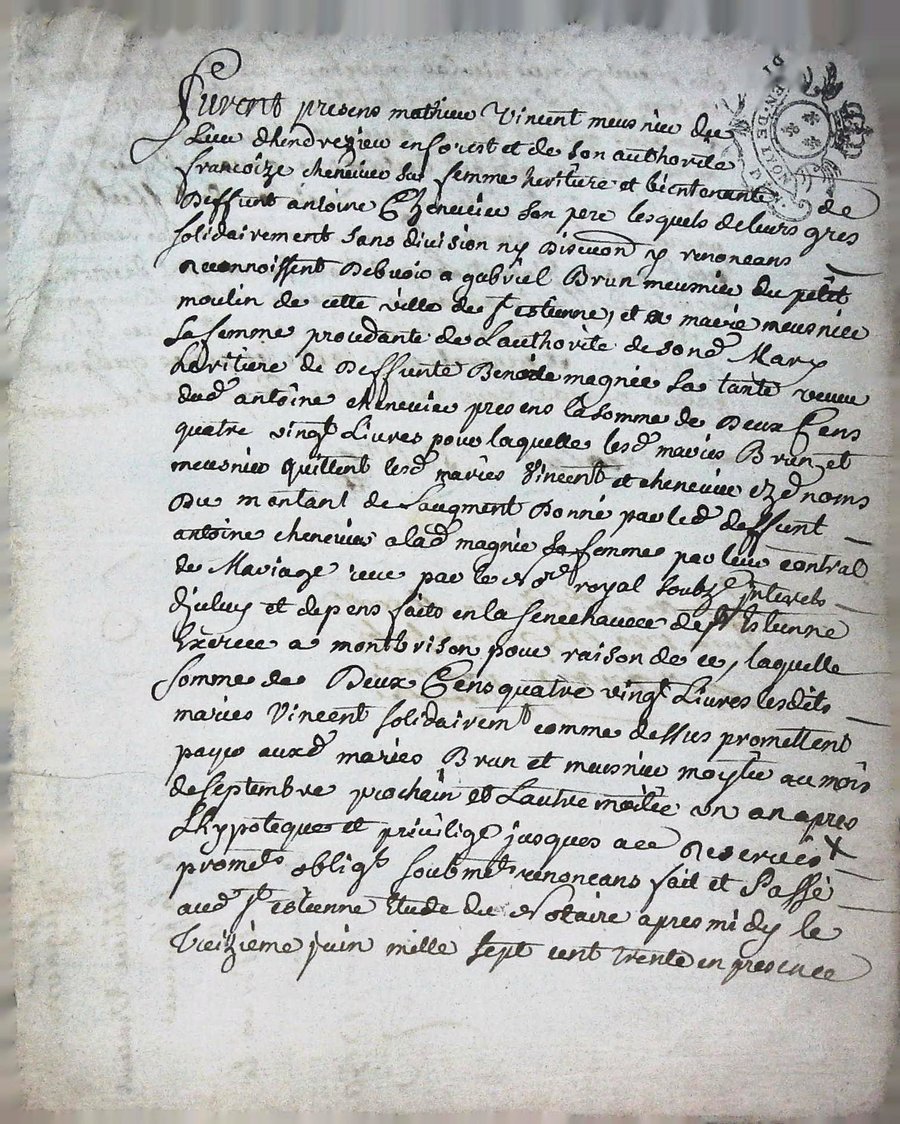 GEN. DE LYON
Furent presens mathieu Vincent meusnier du
Lieu dhendrezieu en forest et de son authorite
francoize chenevier sa femme heritiere et bientenante de
Deffunt antoine Chenevier son pere lesquels de leurs gres
solidairement sans division ny Discution y renoncans
reconnoissent Debvoir a gabriel Brun meusnier du petit
moulin de cette ville de st estienne, et a marie meusnier
sa femme procedante de Lauthorite de sond Mary
heritiere de Deffunte Benoite magnie sa tante veuve
dud antoine chenevier presens la somme de Deux Cens
quatre vingt Livres pour laquelle lesd maries Brun et
meusnier quittent lesd maries Vincent et chenevier ezd noms
Du montant de Laugment Donné par led deffunt
antoine chenevier a lad magnie sa femme par leur contrat
de Mariage receu par le Nore royal soubzé interets
d'iceluy et depens faits en la senechaucee de st Estienne
Exercee a montbrison pour raison de ce, laquelle
somme de Deux Cens quatre vingt Livres lesdits
maries Vincent solidairemt comme dessus promettent
payer auxd maries Brun et meusnier moytie au mois
de septembre prochain et Lautre moitiée un an apres
Lhypoteque et privilige jusques a ce reservés X
promets obligs soubmets renoncans fait et Passé
aud st estienne Etude du Notaire apres midy le
Treizième juin mille sept cent trente en presence